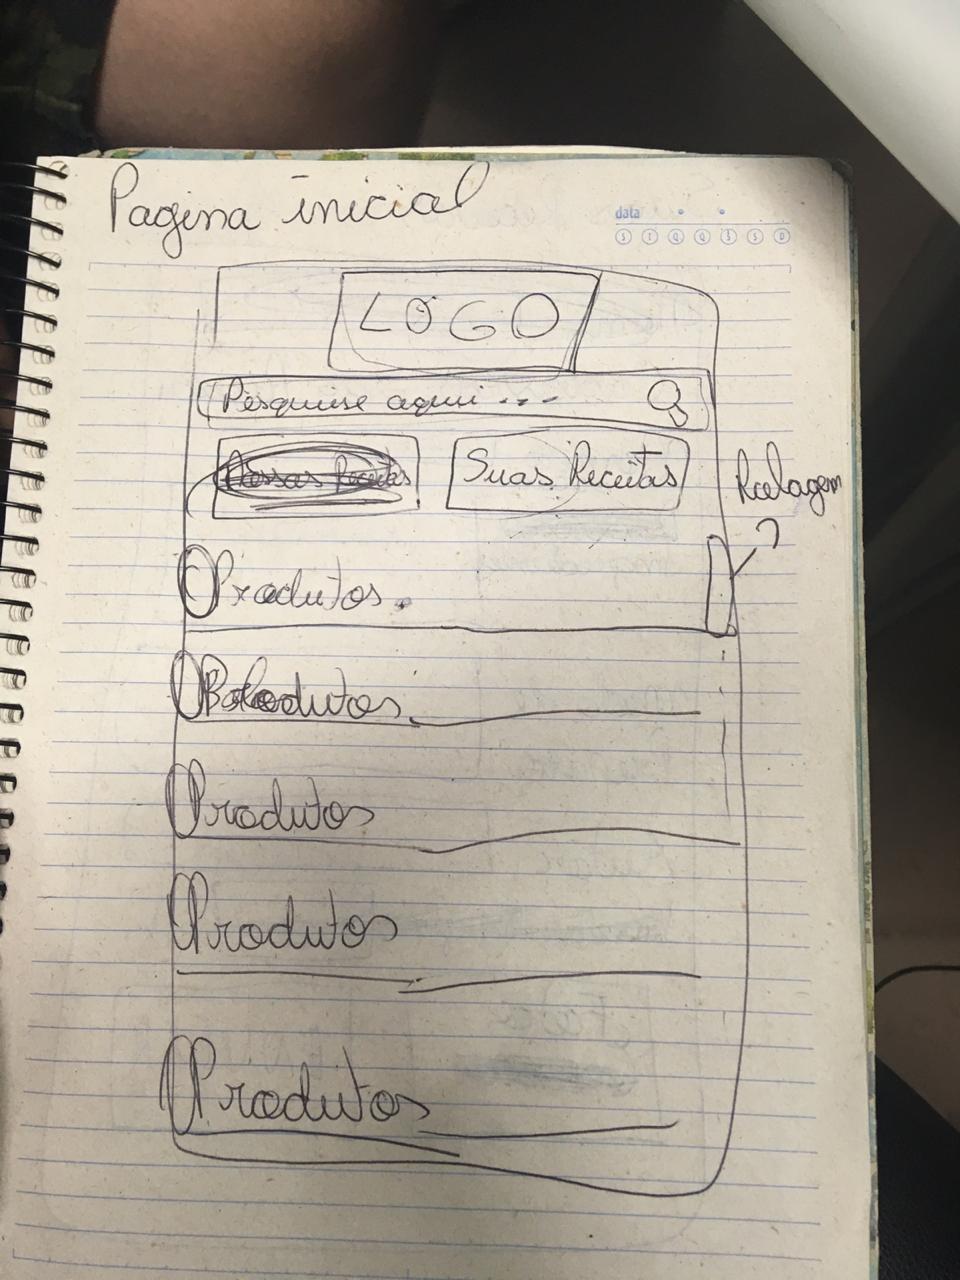 Pagina inicial
data
S T Q Q S S D
LOGO
Pesquise aqui ...
Nossas Receitas
Suas Receitas
Rolagem
Produtos.
Produtos
Produtos
Produtos